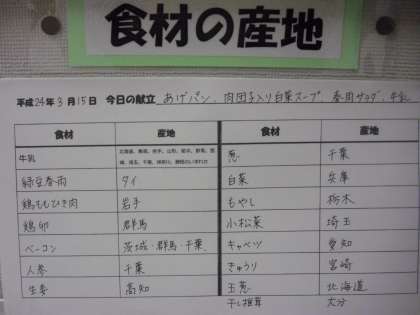 食材の産地
平成24年3月15日 今日の献立 あげパン、肉団子入り白菜スープ、春雨サラダ、牛乳
食材 産地 食材 産地
牛乳 葱 千葉
緑豆春雨 タイ 白菜 兵庫
鶏ももひき肉 岩手 もやし 栃木
鶏卵 群馬 小松菜 埼玉
ベーコン 茨城・群馬・千葉 キャベツ 愛知
人参 千葉 きゅうり 宮崎
生姜 高知 玉葱 北海道
干し椎茸 大分